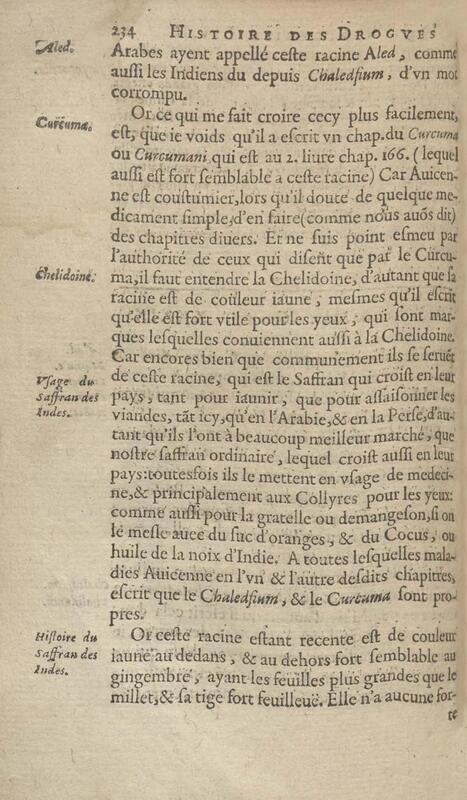 234 HISTOIRE DES DROGVES
Aled.
Arabes ayent appellé ceste racine Aled, comme
aussi les Indiens du depuis Chaledfium, d'vn mot
corrompu.
Curcuma.
Or ce qui me fait croire cecy plus facilement,
est, que ie voids qu'il a escrit vn chap. du Curcuma
ou Curcumani qui est au 2. liure chap. 166. (lequel
aussi est fort semblable à ceste racine) Car Auicen-
ne est coustumier, lors qu'il doute de quelque me-
dicament simple, d'en faire (comme nous auōs dit)
des chapitres diuers. Et ne suis point esmeu par
l'authorité de ceux qui disent que par le Curcu-
Chelidoine.
ma, il faut entendre la Chelidoine, d'autant que sa
racine est de couleur iaune, mesmes qu'il escrit
qu'elle est fort vtile pour les yeux, qui sont mar-
ques lesquelles conuiennent aussi à la Chelidoine.
Car encores bien que communement ils se seruēt
Vsage du
Saffran des
Indes.
de ceste racine, qui est le Saffran qui croist en leur
pays, tant pour iaunir, que pour assaisonner les
viandes, tāt icy, qu'en l'Arabie, & en la Perse, d'au-
tant qu'ils l'ont à beaucoup meilleur marché, que
nostre saffran ordinaire, lequel croist aussi en leur
pays: toutesfois ils le mettent en vsage de medeci-
ne, & principalement aux Collyres pour les yeux:
comme aussi pour la gratelle ou demangeson, si on
le mesle auec du suc d'oranges, & du Cocus, ou
huile de la noix d'Indie. A toutes lesquelles mala-
dies Auicenne en l'vn & l'autre desdits chapitres,
escrit que le Chaledfium, & le Curcuma sont pro-
pres.
Histoire du
Saffran des
Indes.
Or ceste racine estant recente est de couleur
iaune au dedans, & au dehors fort semblable au
gingembre, ayant les feuilles plus grandes que le
millet, & sa tige fort feuilleuë. Elle n'a aucune for-
te